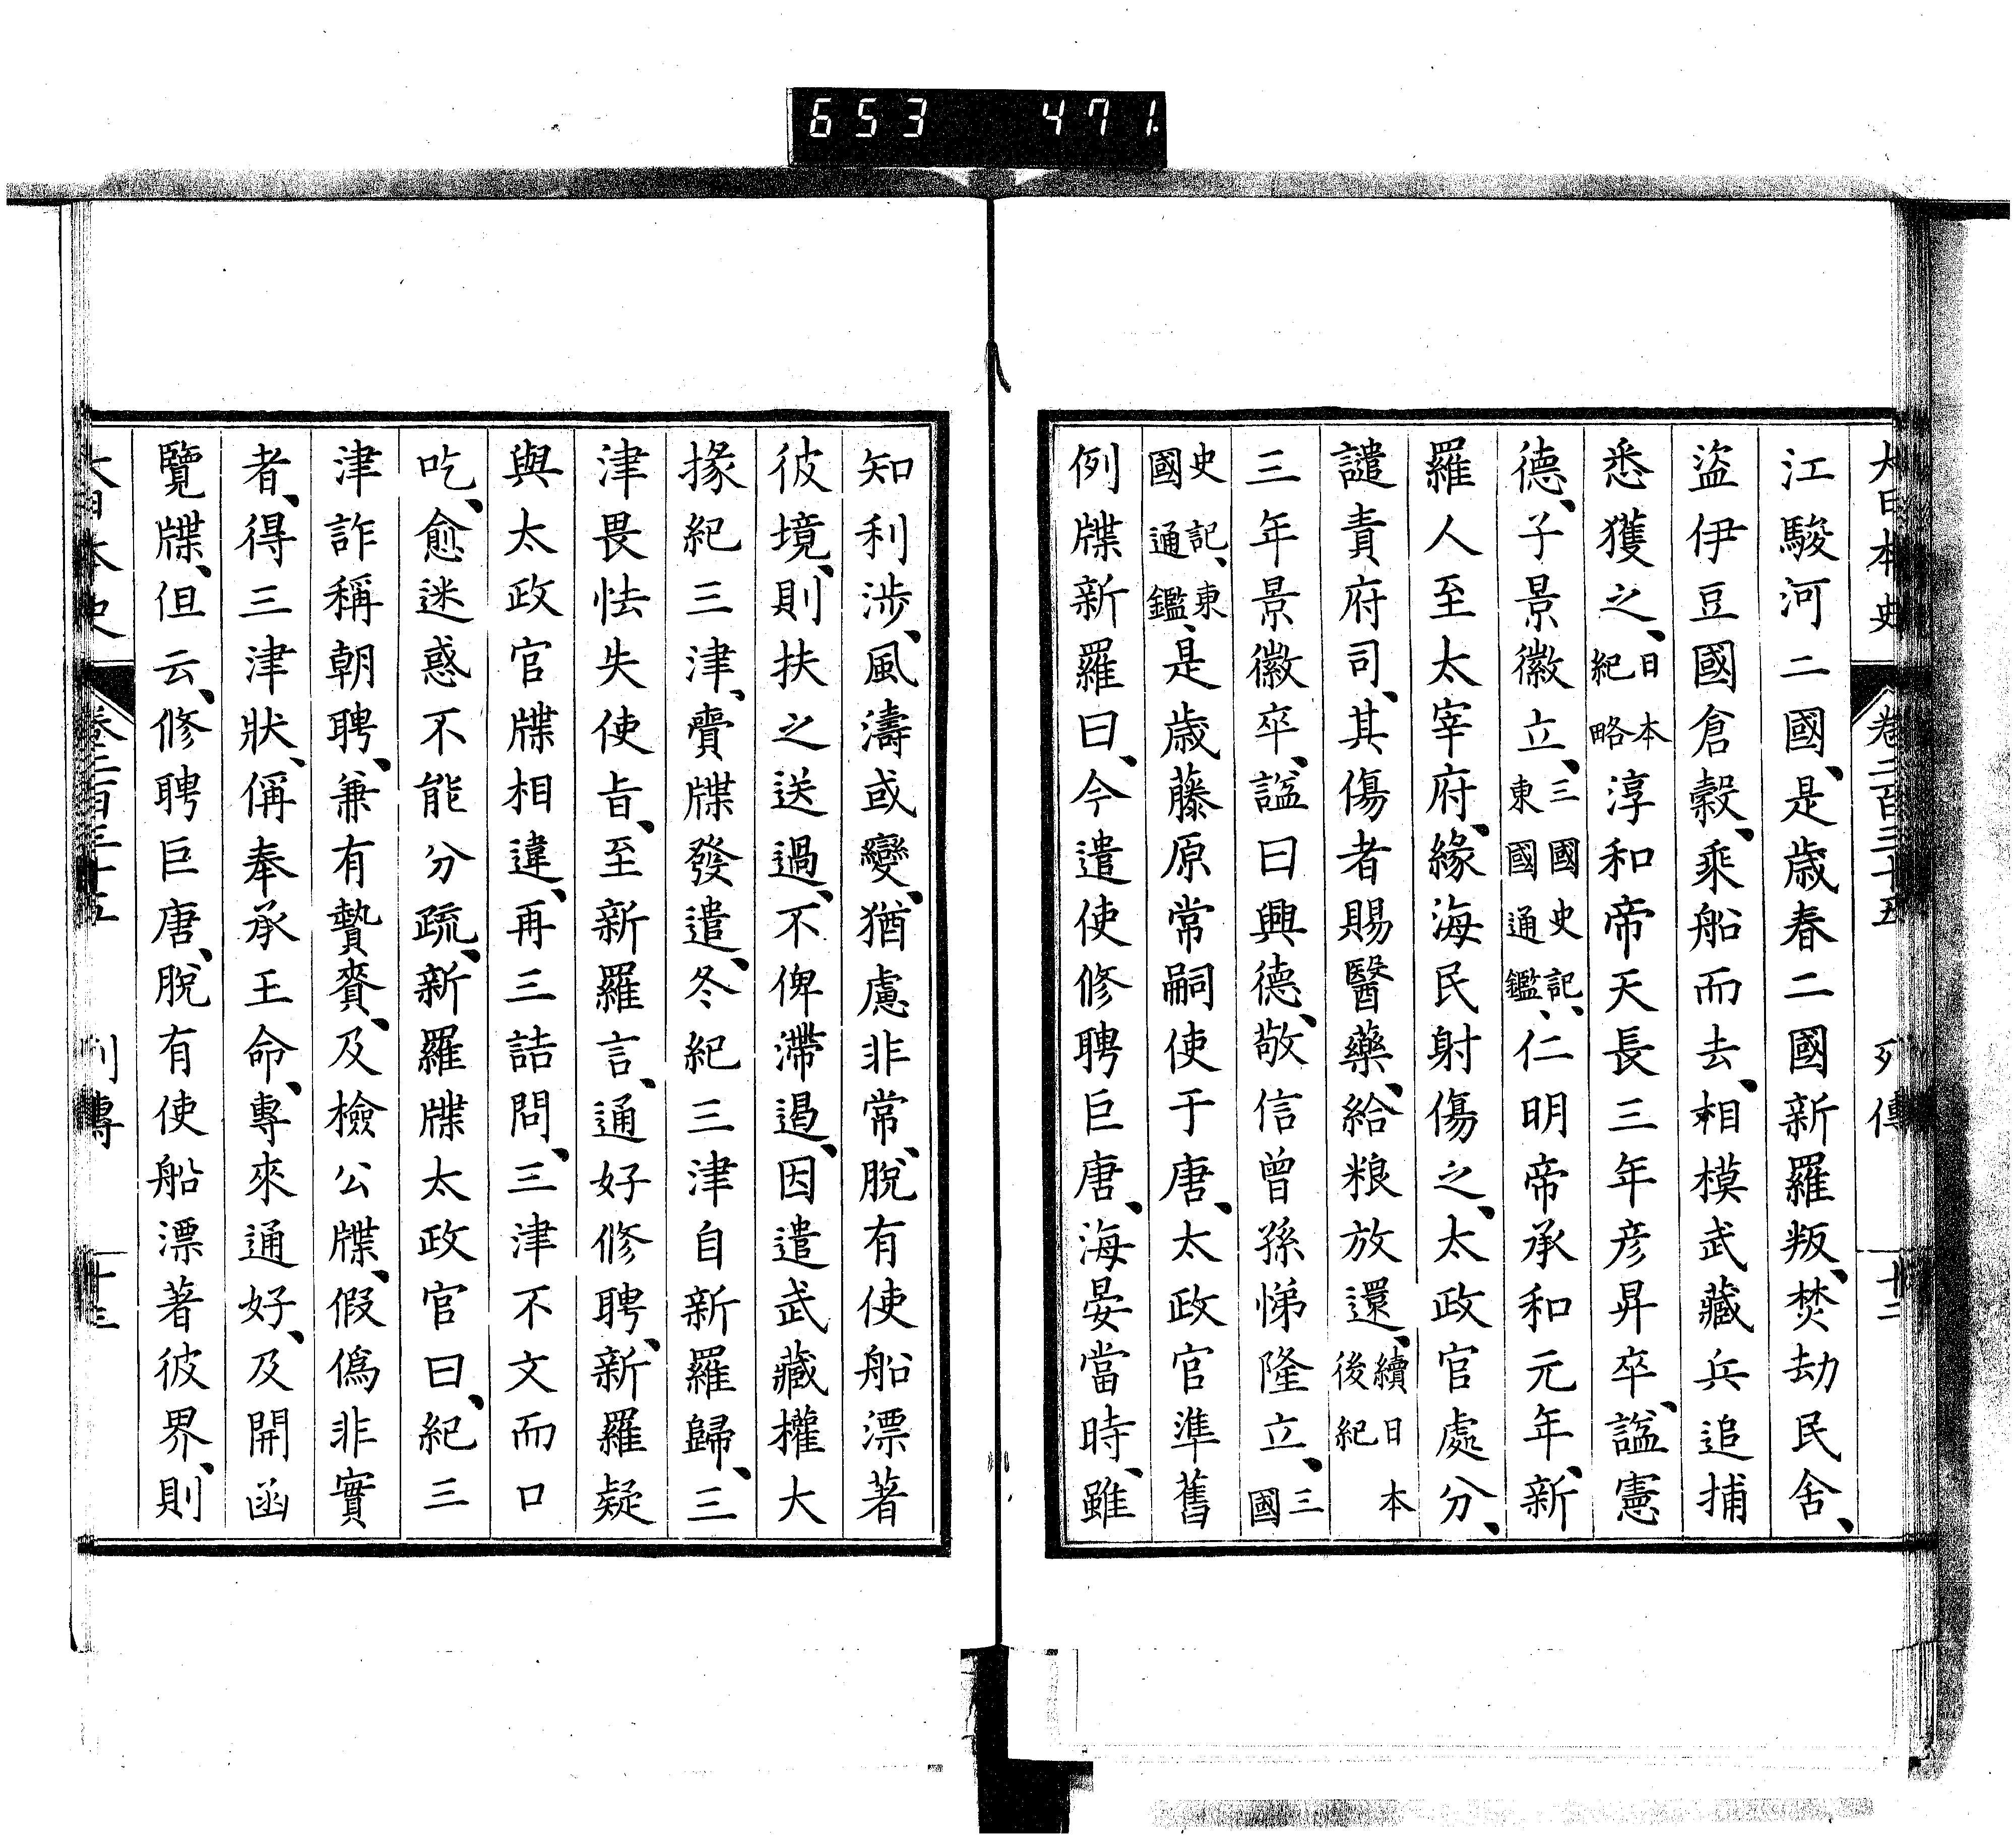 653 471.
大日本史 卷二百三十五 列傳 十二
江駿河二國、是歲春二國新羅叛、焚劫民舍、
盜伊豆國倉穀、乘船而去、相模武藏兵追捕
悉獲之、日本紀略淳和帝天長三年彦昇卒、諡憲
德、子景徽立、三國史記、東國通鑑、仁明帝承和元年、新
羅人至太宰府、緣海民射傷之、太政官處分、
譴責府司、其傷者賜醫藥、給粮放還、續日本後紀
三年景徽卒、諡曰興德、敬信曾孫悌隆立、三國
史記、東國通鑑、是歲藤原常嗣使于唐、太政官準舊
例牒新羅曰、今遣使修聘巨唐、海晏當時、雖
知利涉、風濤或變、猶慮非常、脫有使船漂著
彼境、則扶之送過、不俾滯遏、因遣武藏權大
掾紀三津、賷牒發遣、冬紀三津自新羅歸、三
津畏怯失使旨、至新羅言、通好修聘、新羅疑
與太政官牒相違、再三詰問、三津不文而口
吃、愈迷惑不能分疏、新羅牒太政官曰、紀三
津詐稱朝聘、兼有贄賚、及檢公牒、假僞非實
者、得三津狀、偁奉承王命、專來通好、及開函
覽牒、但云、修聘巨唐、脫有使船漂著彼界、則
大日本史 卷二百三十五 列傳 十三